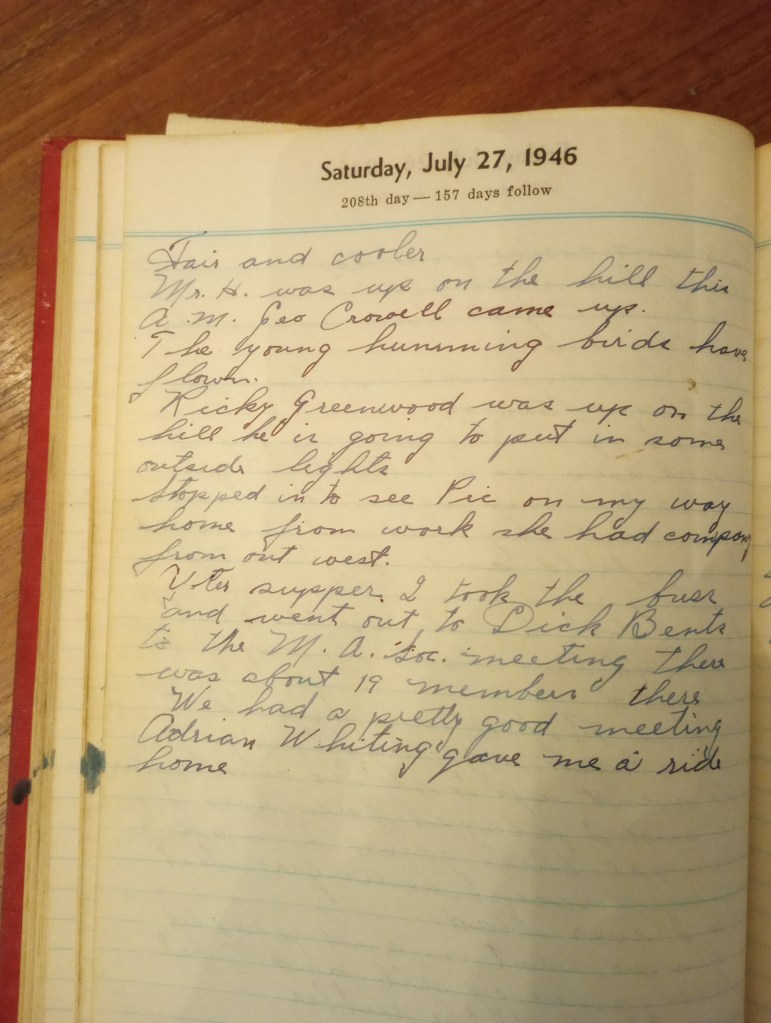 Saturday, July 27, 1946
208th day — 157 days follow
Fair and cooler
Mr. H. was up on the hill this
A.M. Geo Crowell came up.
The young humming birds have
flown.
Ricky Greenwood was up on the
hill he is going to put in some
outside lights
Stopped in to see Pic on my way
home from work she had company
from out west.
After supper I took the buss
and went out to Dick Bents
to the M. A. Soc. meeting there
was about 19 members there
We had a pretty good meeting
Adrian Whiting gave me a ride
home